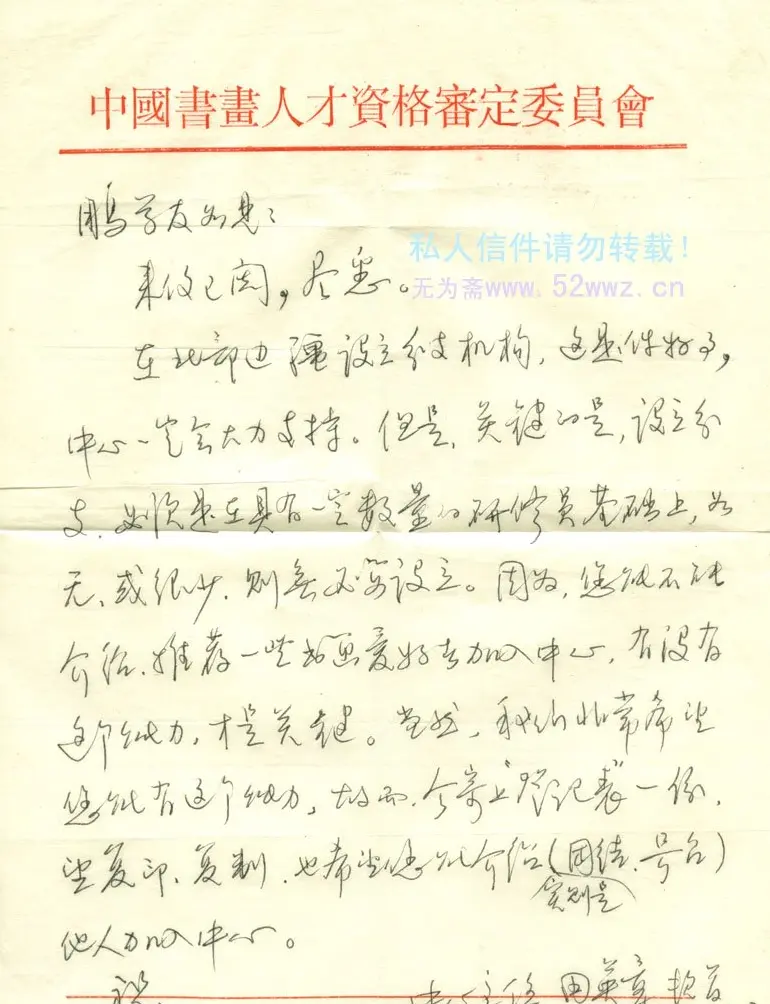 中國書畫人才資格審定委員會
鹏学友如見：
私人信件请勿转载！
来信已阅，尽悉。
无为斋www.52wwz.cn
在北部边疆设立分支机构，这是件好事，
中心一定会大力支持。但是，关键的是，设立分
支，必须是在具有一定数量的研修员基础上，如
无、或很少，则无必要设立。因为，您能不能
介绍、推荐一些书画爱好者加入中心，有没有
这个能力，才是关键。当然，我们非常希望
您能有这个能力，故而，今寄上“登记表”一份，
望复印、复制，也希望您能介绍（团结、号召）
实则是
他人加入中心。
祝